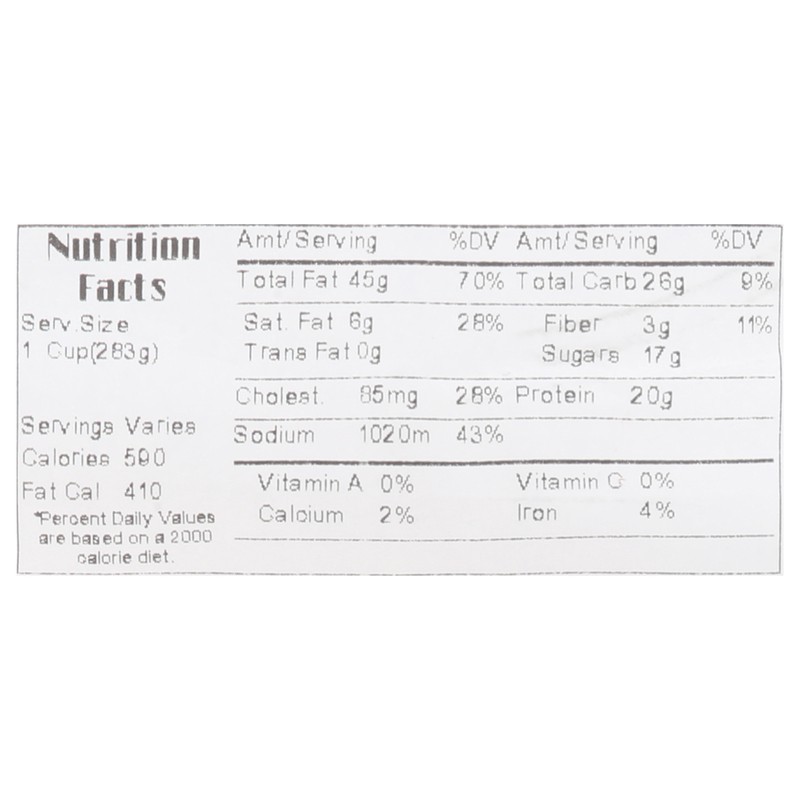 Nutrition
Facts
Serv.Size
1 Cup(283g)
Servings Varies
Calories 590
Fat Cal 410
*Percent Daily Values
are based on a 2000
calorie diet.
Amt/Serving %DV Amt/Serving %DV
Total Fat 45g 70% Total Carb 26g 9%
Sat. Fat 6g 28% Fiber 3g 11%
Trans Fat 0g Sugars 17g
Cholest. 85mg 28% Protein 20g
Sodium 1020m 43%
Vitamin A 0% Vitamin C 0%
Calcium 2% Iron 4%